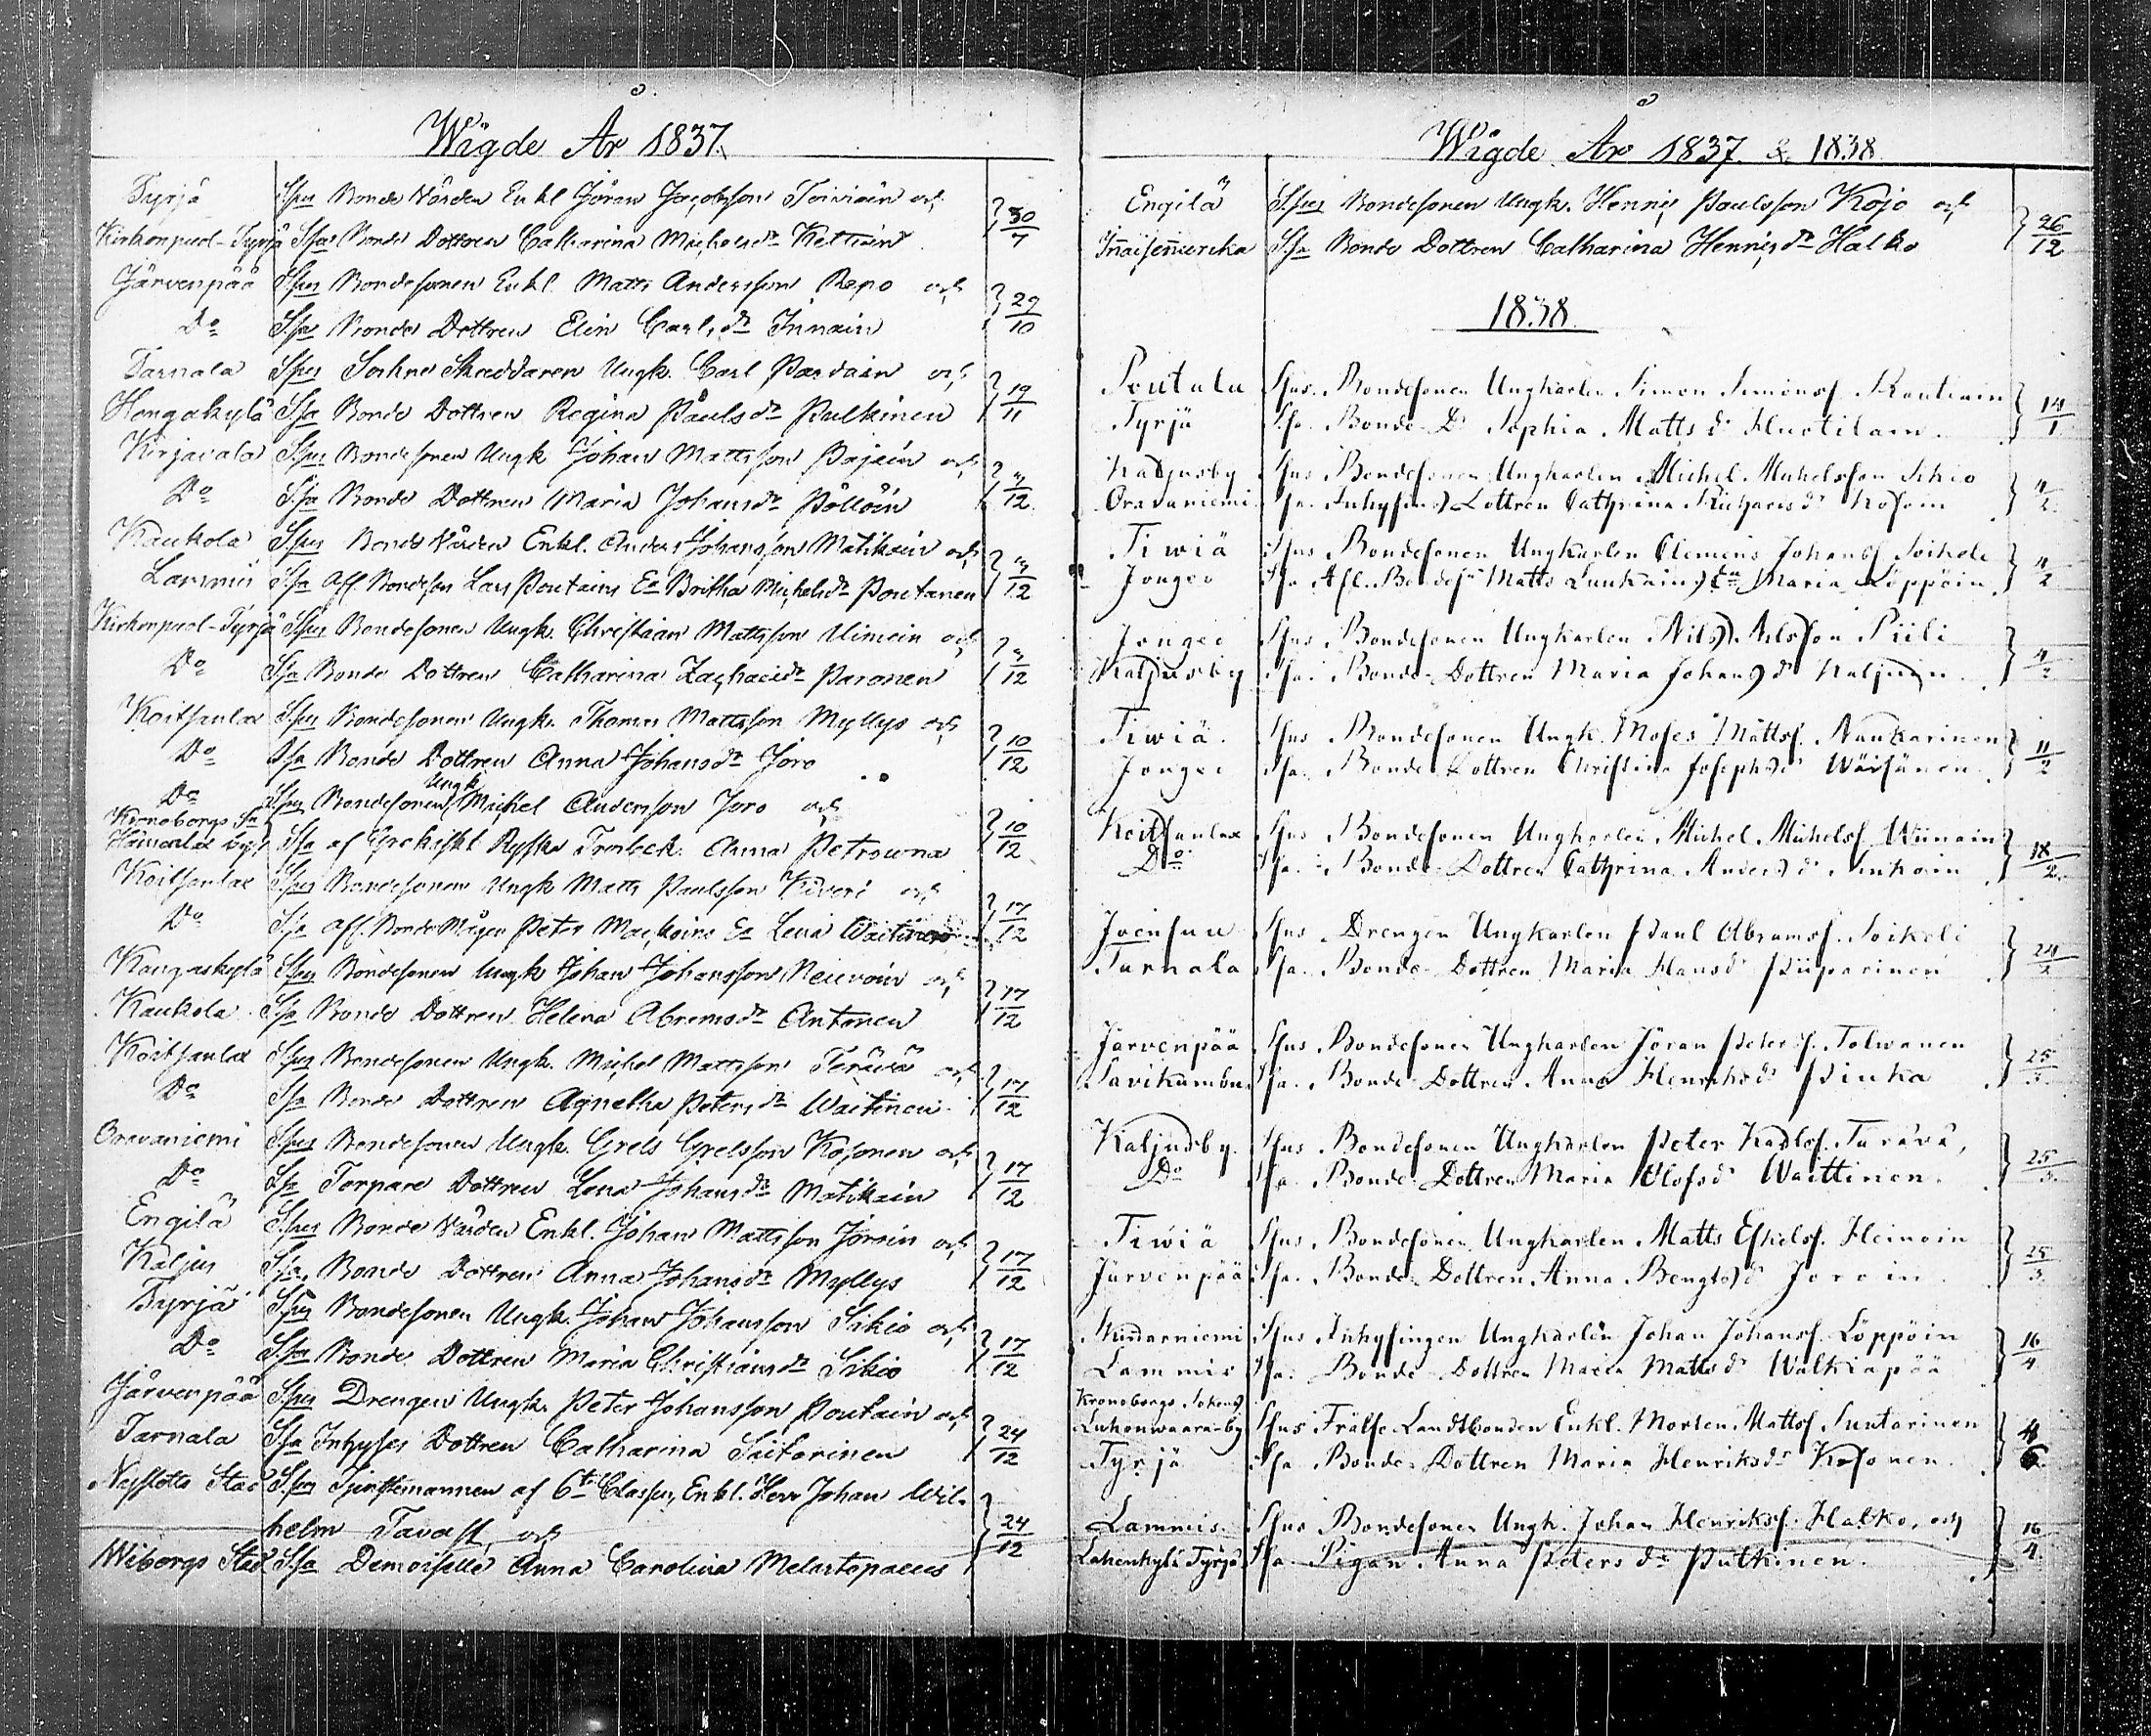 Wigde År 1837.
Tyrjä Spus Bonde Vården Enkl Jöran Jacobsson Toiviain och
Kirkonpuol-Tyrjä Spa Bonde Dottren Catharina Michelsdr Kettuin 30/7
Järvenpää Spus Bondesonen Enkl. Matts Andersson Repo och
Do Spa Bonde Dottren Elin Carlsdr Innain 29/10
Tarnala Spus Sockne Skräddaren Ungk. Carl Pardain och
Hongakylä Spa Bonde Dottren Regina Paulsdr Pulkinen 19/11
Kirjavala Spus Bondesonen Ungk Johan Mattsson Pajain och
Do Spa Bonde Dottren Maria Johansdr Pöllöin /12
Kaukola Spus Bonde Vården Enkl. Anders Johansson Matikain och
Lammis Spa Afl. Bondeson Lars Poutains Ea Britha Michelsdr Poutanen /12
Kirkonpuol-Tyrjä Spus Bondesonen Ungk. Christian Mattsson Uimoin och
Do Spa Bonde Dottren Catharina Zachariedr Paronen /12
Koitsanlax Spus Bondesonen Ungk. Thomas Mattsson Myllys och
Do Spa Bonde Dottren Anna Johansdr Joro 10/12
Do Spus Bondesonen Ungk Michel Andersson Joro och
Kronoborgs Sn
by Spa af Grekiskt Ryska Trosbek. Anna Petrowna 10/12
Koitsanlax Spus Bondesonen Ungk Matts Paulsson Kiveri och
Do Spa Afl. Bonde Mågen Peter Ea Lena Waitinen 17/12
Kangaskylä Spus Bondesonen Ungk Johan Johansson Neuvoin och
Kaukola Spa Bonde Dottren Helena Abramsdr Antonen 17/12
Koitsanlax Spus Bondesonen Ungk. Michel Mattsson Terävä och
Do Spa Bonde Dottren Agnetha Petersdr Waitinen 17/12
Oravaniemi Spus Bondesonen Ungk. Grels Grelsson Kosonen och
Do Spa Torpare Dottren Lena Johansdr Matikain 17/12
Engilä Spus Bonde Vården Enkl. Johan Mattsson Joroin och
Kaljus Spa Bonde Dottren Anna Johansdr Myllys 17/12
Tyrjä Spus Bondesonen Ungk. Johan Johansson Sikio och
Do Spa Bonde Dottren Maria Christiansdr Sikio 17/12
Järvenpää Spus Drengen Ungk. Peter Johansson Poutain och
Tarnala Spa Inhyses Dottren Catharina Saitarinen 24/12
Nyslotts Stad Spus Tjenstemannen af 6te Classen, Enkl. Herr Johan Wil-
helm Tavast, och
Wiborgs Stad Spa Demoiselle Anna Carolina Melartopaeus 24/12
Wigde År 1837 & 1838
Engilä Spus Bondesonen Ungk. Hennis Paulsson Kojo och
Spa Bonde Dottren Catharina Hennisdr Halko 26/12
1838
Poutala Spus. Bondesonen Ungkarlen Simon Simonsf. 14/1
Tyrjä Spa. Bonde Dr Sophia Matts dr Huotilain
Kaljusby Spus Bondesonen Ungkarlen Michel Michelsson Sikio
Oravaniemi Spa. Inhysings Dottren Cathrina dr Kosoin /2
Tiwiä Spus Bondesonen Ungkarlen Clemens Johansf Soikeli
Jongeo Spa Afl. Bondesn Matts Enka Maria Löppöin /2
Jongeo Spus Bondesonen Ungkarlen Nils Nilsson Piili
Kaljusby Spa. Bonde-Dottren Maria Johans dr Kaljuin
Tiwiä Spus Bondesonen Ungk. Moses Mattsf. Naukarinen
Jongeo Spa. Bonde Dottren Christina Josephs dr Wäisänen 11/2
Koitsanlax Spus Bondesonen Ungkarlen Michel Michelsf Wiinain
Do Spa. Bonde-Dottren Cathrina Anders dr Sinkoin 18/2
Joensuu Spus Drengen Ungkarlen Paul Abramsf. Soikeli
Tarnala Spa. Bonde Dottren Maria Hansdr Piiparinen 24/2
Järvenpää Spus Bondesonen Ungkarlen Jöran Petersf. Tolwanen
Savikumbu Spa. Bonde-Dottren Anna Henriksdr Pinka 25/3
Kaljusby Spus Bondesonen Ungkarlen Peter Karlsf. Terävä,
Do Spa. Bonde-Dottren Maria Olofsdr Waittinen. 25/3
Tiwiä Spus Bondesonen Ungkarlen Matts Eskelsf. Heinoin
Järvenpää Spa. Bonde-Dottren Anna Bengtsdr Joroin 25/3
Spus Inhysingen Ungkarlen Johan Johansf. Löppöin
Lammis Spa. Bonde Dottren Maria Mattsdr Walkiapää 16/4
Kronoborgs Sokn
Lukonwaara-by Spus Frälse Landtbonden Enkl. Morten Mattsf. Suutarinen
Tyrjä Spa Bonde-Dottren Maria Henriksdr Kosonen
Lammis Spus Bondesonen Ungk. Johan Henriksf. Halko, och
Lahenkylä Tyrjä Spa Pigan Anna Peters dr Pulkinen. 16/4